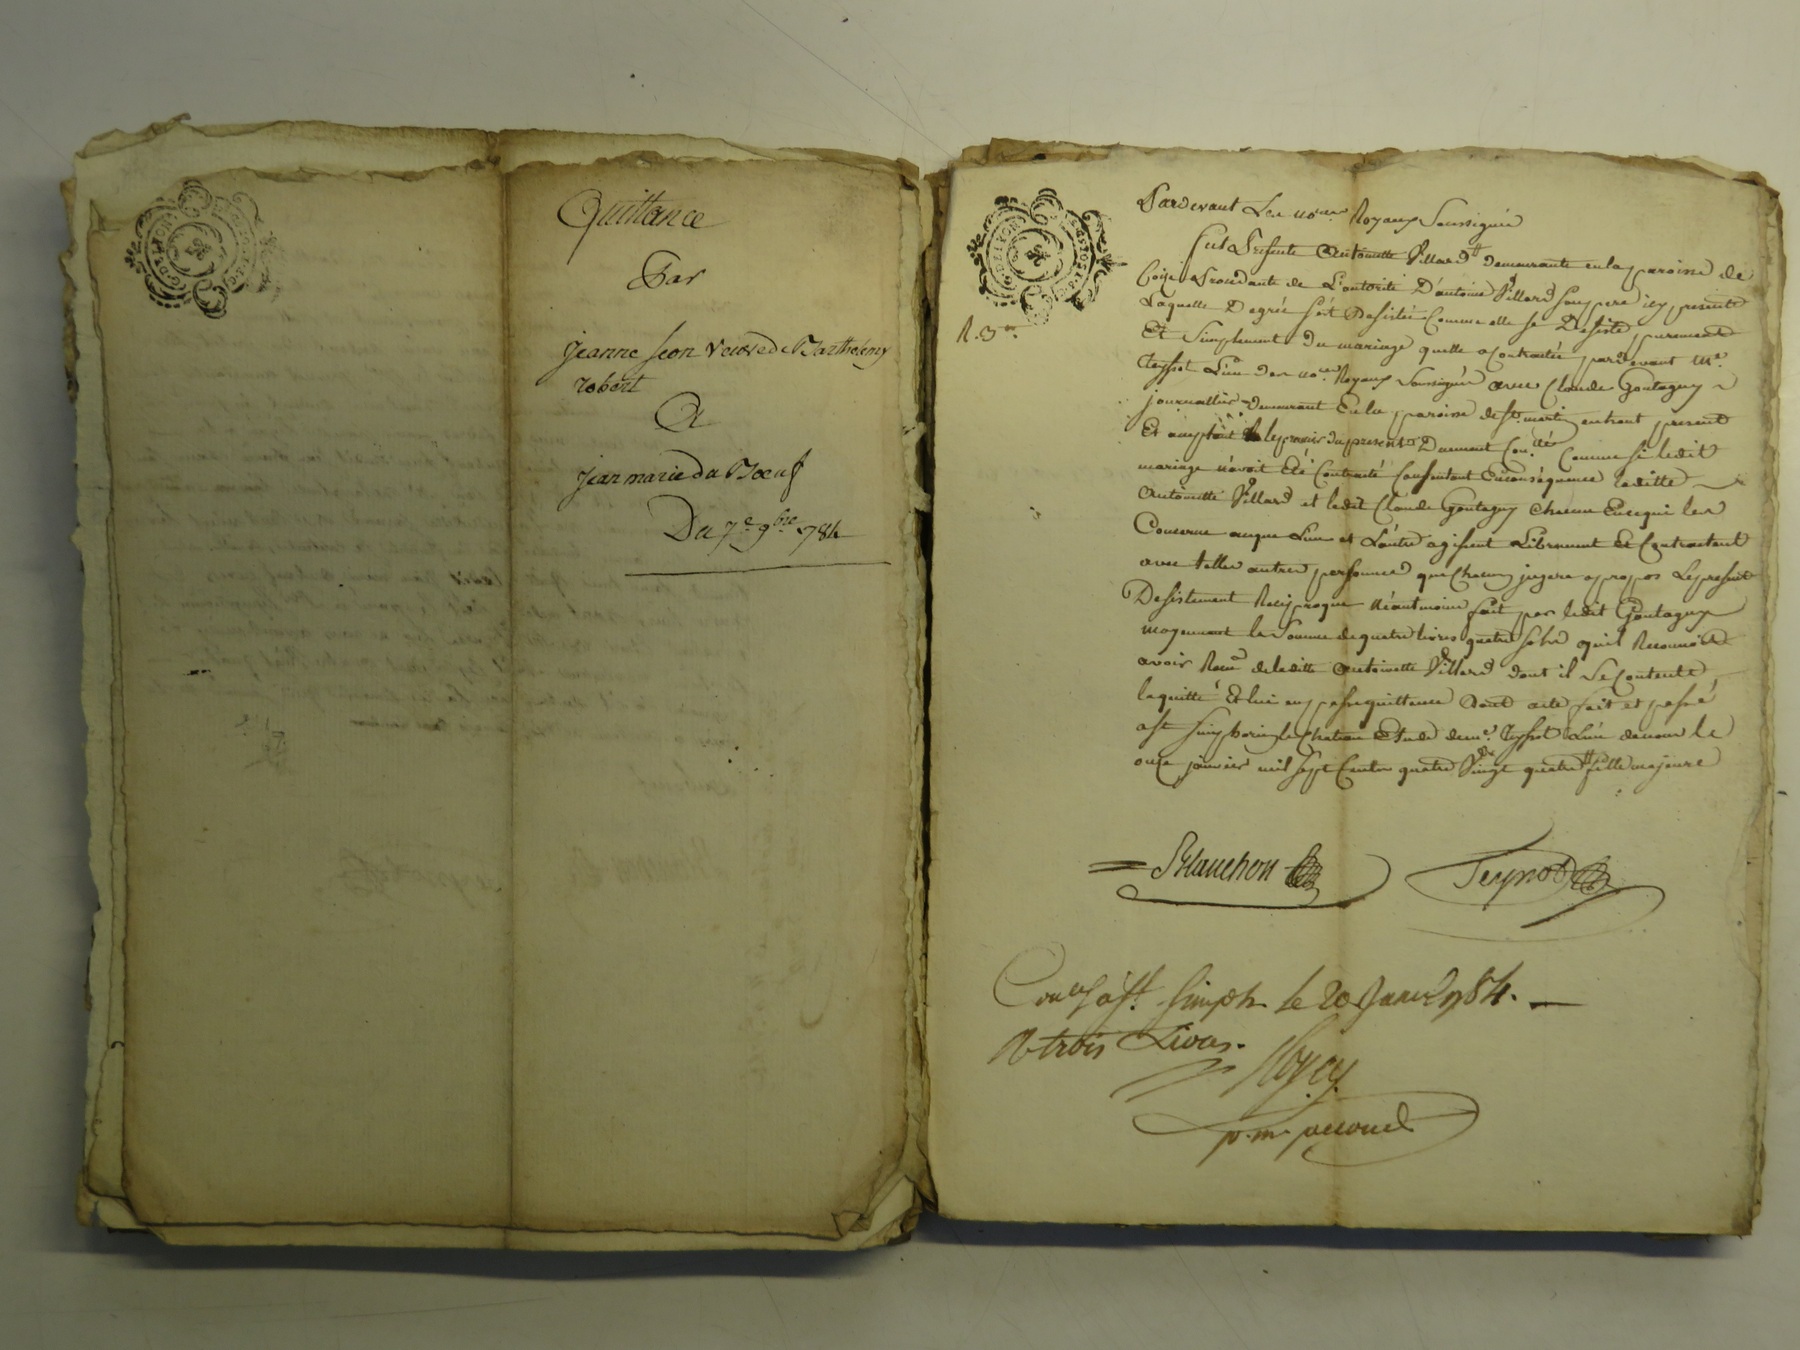 Quittance
Par
jeanne jeon veuve de Barthelemy
robert
A
jean marie du Boeuf
Du 7e 9bre 1784
Pardevant Les nores Royaux Soussignés
fut Presente Antoinette Villard # demeurante en la paroisse de
Coize procedante de L'autorité D'antoine Villard son pere icy present
Laquelle De gré s'est Desistée Comme elle se Desiste purement
R. 3 lt.
Et Simplement du mariage quelle a Contractée pardevant Me.
Teyssot L'un des nores. Royaux Soussignés avec Claude Goutagny
journallier Demeurant En la paroisse de st. martin en haut present
Et acceptant le present Comme si ledit
mariage n'avoit Eté Contracté Consentant Enconséquence laditte
Antoinette Villard et ledit Claude Goutagny chacun Encequi les
Concerne aceque L'une et L'autre agissent Librement Et Contractent
avec telles autres personnes que chacun jugera apropos Lepresent
Desistement Reciproque Néantmoins fait par ledit Goutagny
moyennant la Somme de quatre livres quatre sols quil Reconnoit
avoir Recue de laditte Antoinette Villard dont il Se Contente
la quitté Et lui en passe quittance Dont acte fait et passé
a st simphorien le chateau Etude de me. Teyssot L'un de nous le
onze janvier mil sept Cents quatre Vingt quatre # fille majeure
Blanchon Teyssot
Con.lé à st. simph. le 20 Janv. 1784.
R trois Livres.